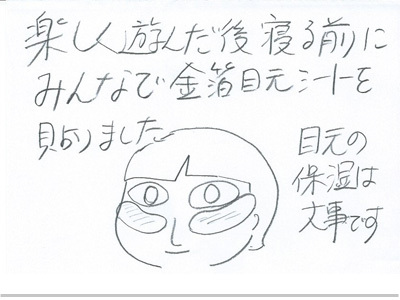 楽しく遊んだ後寝る前に
みんなで金箔目元シートを
貼りました
目元の
保湿は
大事です